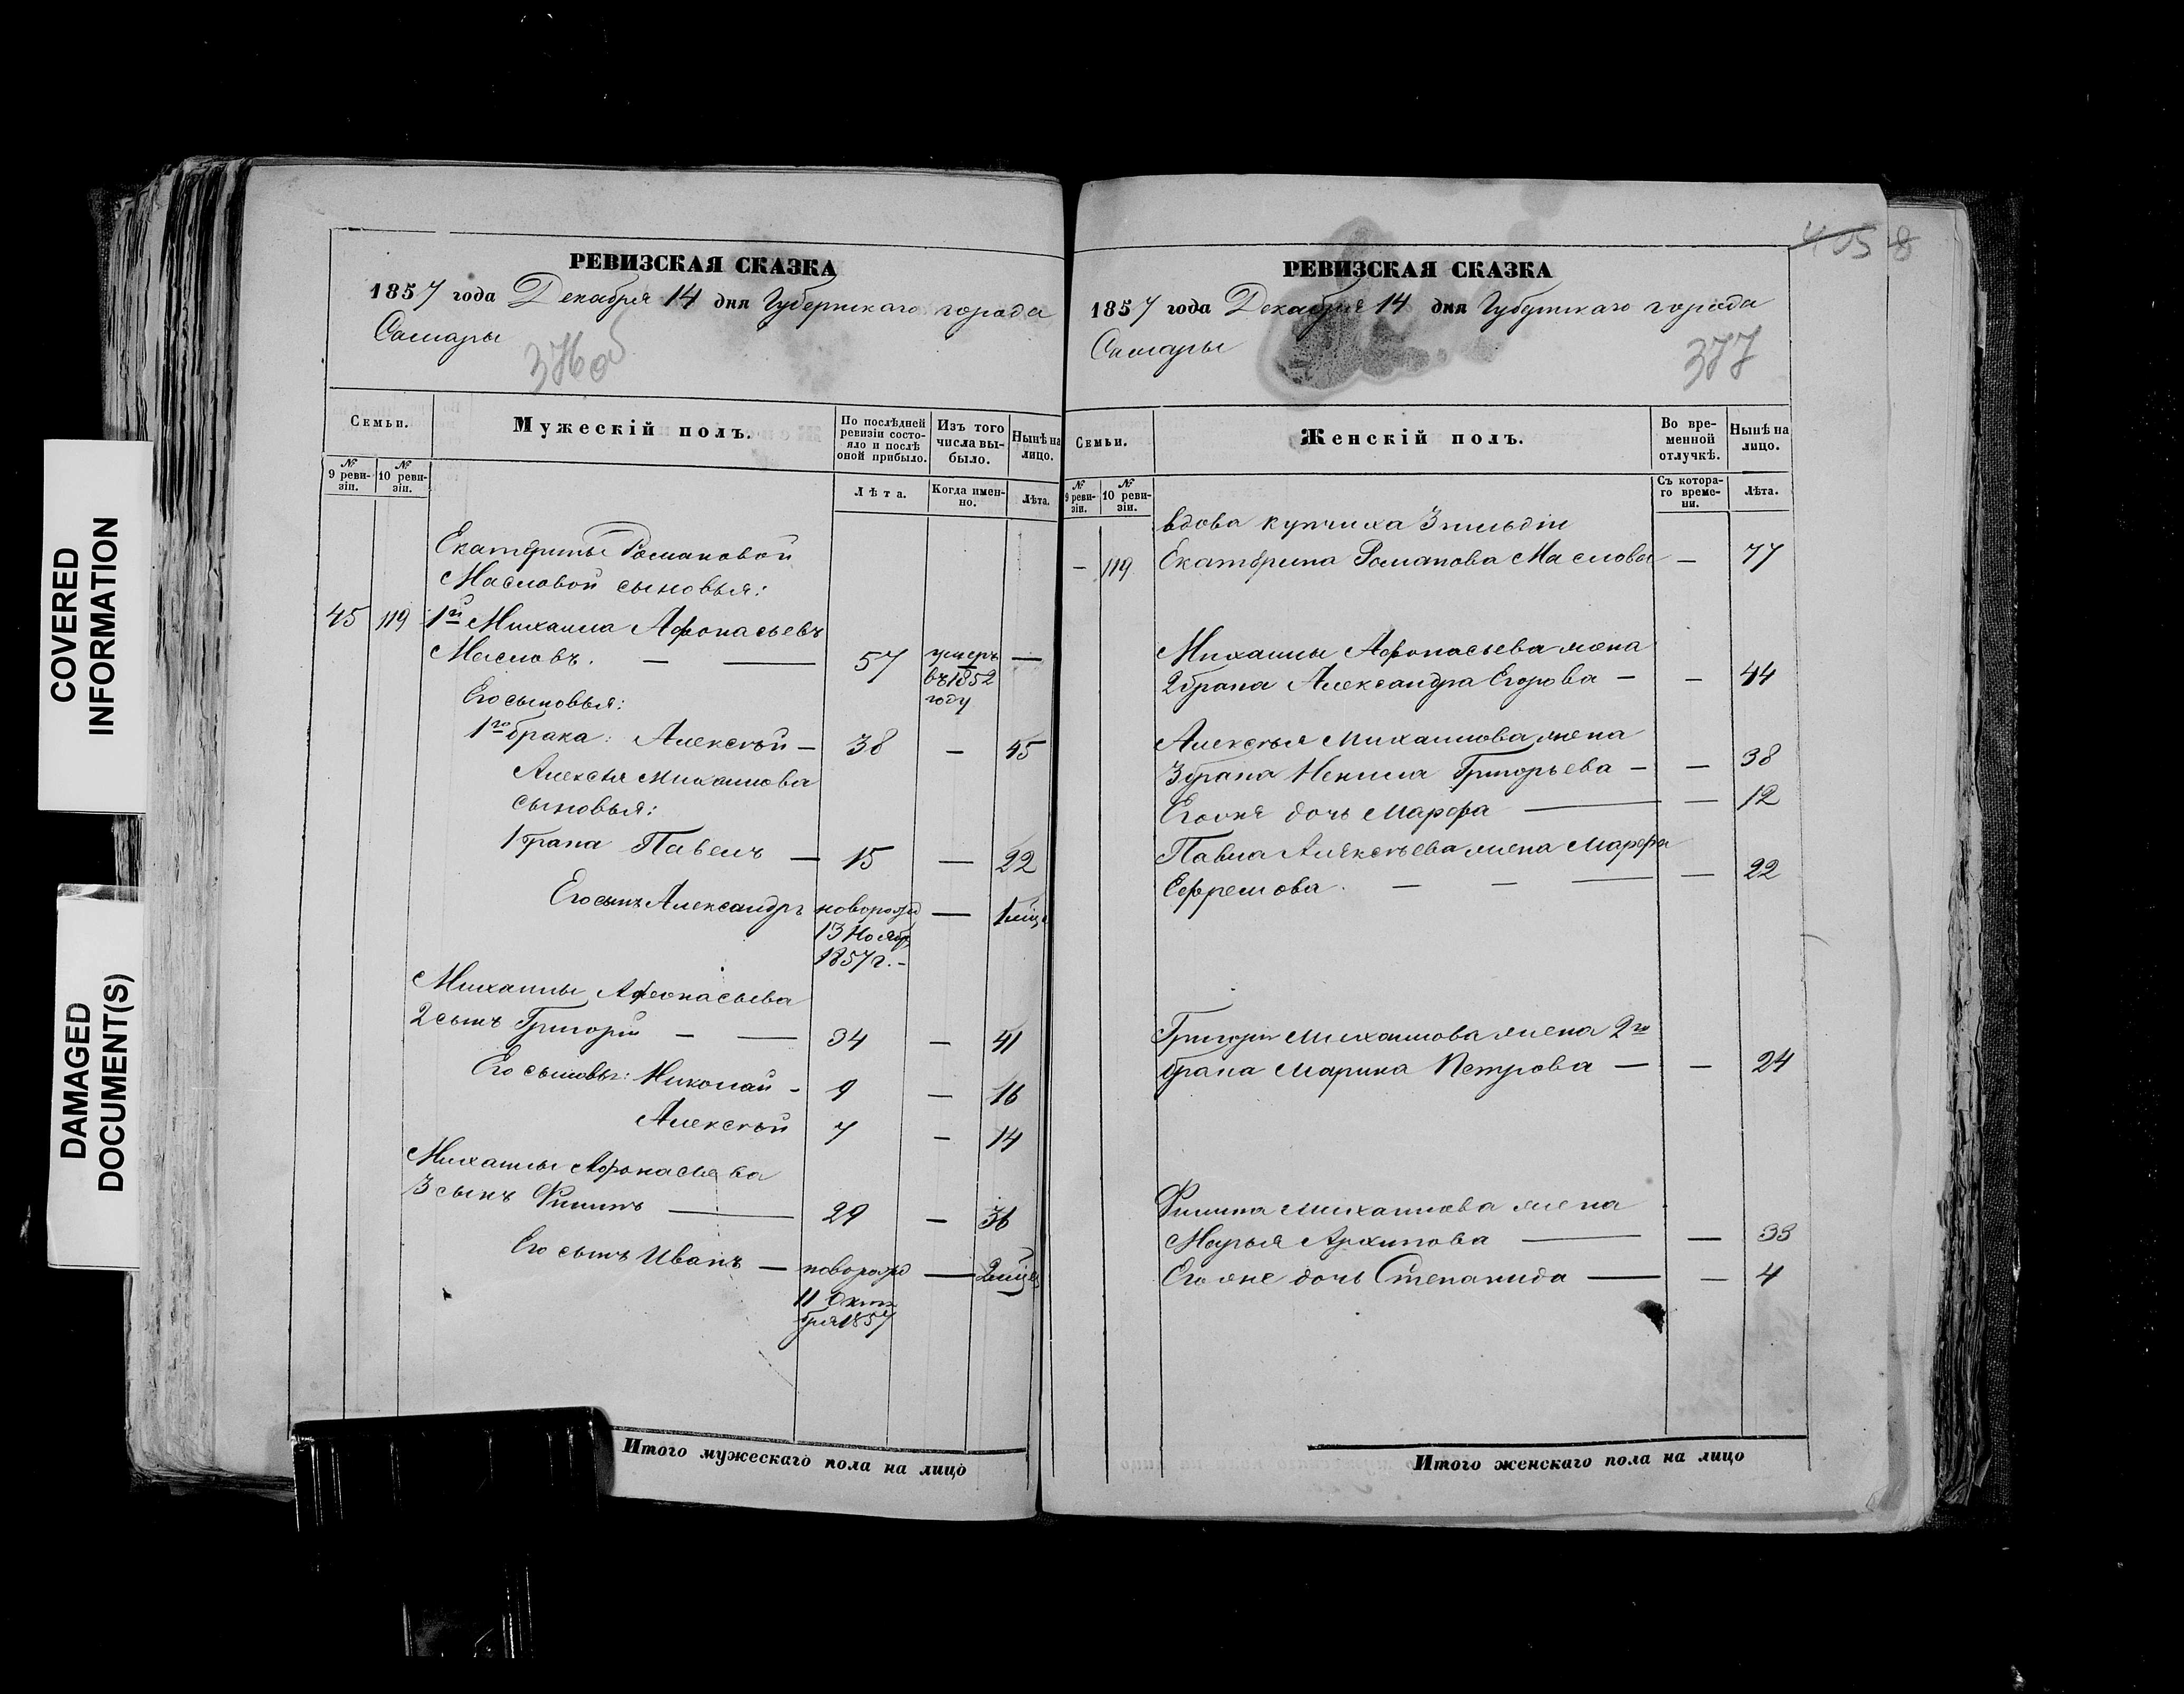 COVERED
INFORMATION
DAMAGED
DOCUMENT(S)
РЕВИЗСКАЯ СКАЗКА
1857 года Декабря 14 дня Губернскаго города
Самары
376об
Семьи.
Мужескій полъ.
По послѣдней ревизіи состояло и послѣ оной прибыло.
Изъ того числа выбыло.
Нынѣ на лицо.
№ 9 ревизіи.
№ 10 ревизіи.
Лѣта.
Когда именно.
Лѣта.
Екатерины Романовой
Масловой сыновья:
45 119 1й Михаила Афонасьевъ
Масловъ. — — 57 умеръ —
въ 1852
году
Его сыновья:
1го брака: Алексѣй — 38 — 45
Алексѣя Михаилова
сыновья:
1 брака Павелъ — 15 — 22
Его сынъ Александръ новорожд — 1 мѣс
13 Нояб
1857 г. —
Михаилы Афонасьева
2 сынъ Григорій — — 34 — 41
Его сыновья: Николай — 9 — 16
Алексѣй 7 — 14
Михаилы Афонасьева
3 сынъ Филипъ — 29 — 36
Его сынъ Иванъ — новорожд — 2 мѣс
11 Октя
бря 1857
Итого мужескаго пола на лицо
405
8
РЕВИЗСКАЯ СКАЗКА
1857 года Декабря 14 дня Губернскаго города
Самары
377
Семьи.
Женскій полъ.
Во временной отлучкѣ.
Нынѣ на лицо.
№ 9 ревизіи.
№ 10 ревизіи.
Съ котораго времени.
Лѣта.
вдова купчиха 3 гильдіи
— 119 Екатерина Романова Маслова — 77
Михаилы Афонасьева жена
2 брака Александра Егорова — — 44
Алексѣя Михаилова жена
3 брака Ненила Григорьева — — 38
Его же дочь Марфа — — 12
Павла Алексѣева жена Марфа
Ефремова. — — — — 22
Григорія Михаилова жена 2го
брака Марина Петрова — — 24
Филипа Михаилова жена
Марья Архипова — — 33
Его же дочь Степанида — — 4
Итого женскаго пола на лицо